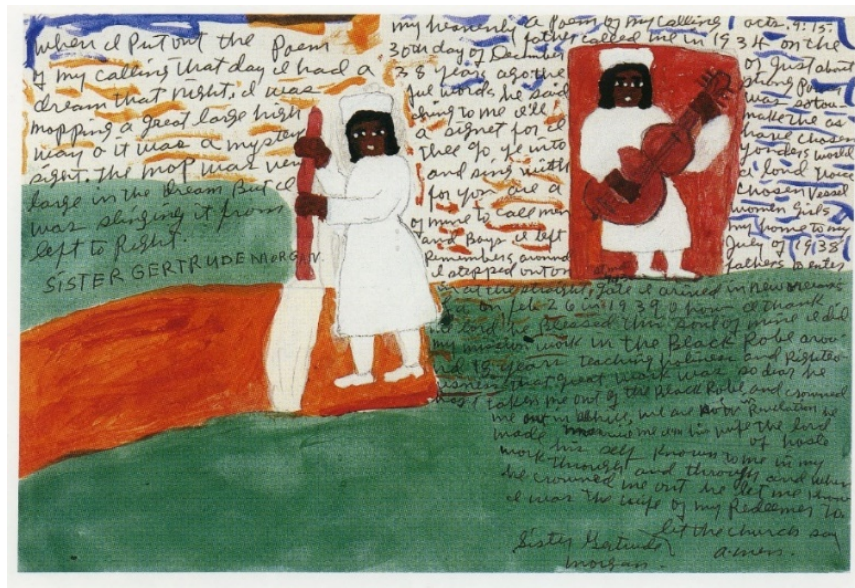 when I Put out the Poem
of my calling that day I had a
dream that night, I was
mopping a great large high
way o it was a mystery
sight. the mop was very
large in the dream But I
was slinging it from
left to Right.
SISTER GERTRUDE MORGAN.
my heavenly a Poem of my Calling acts. 9:15.
father called me in 1934 on the
30th day of December of Just about
38 years ago the strong Power
few words he said was so tou
ching to me I'll make thee as
a signet for I have chosen
thee Go ye into yonders world
and sing with a loud voice
for you are a chosen vessel
of mine to call men women Girls
and Boys I left my home to my
Remember, around July of (1938
I stepped out on fathers to enter
in at the straight gate I arived in new orleans
on feb 26 in 1939 o how I thank
the lord he Blessed this soul of mine I did
my mission work in the Black Robe arou
nd 18 years teaching holiness and Righteo
usness that great work was so dear he
has takes me out of the Black Robe and crowned
me out in white, we are now in Revelation he
made me his wife the lord
his self Known to me in my of hosts
work through and through and when
he crowned me out he let me know
I was the wife of my Redeemer to.
let the church say
amen.
Sister Gertrude
morgan.